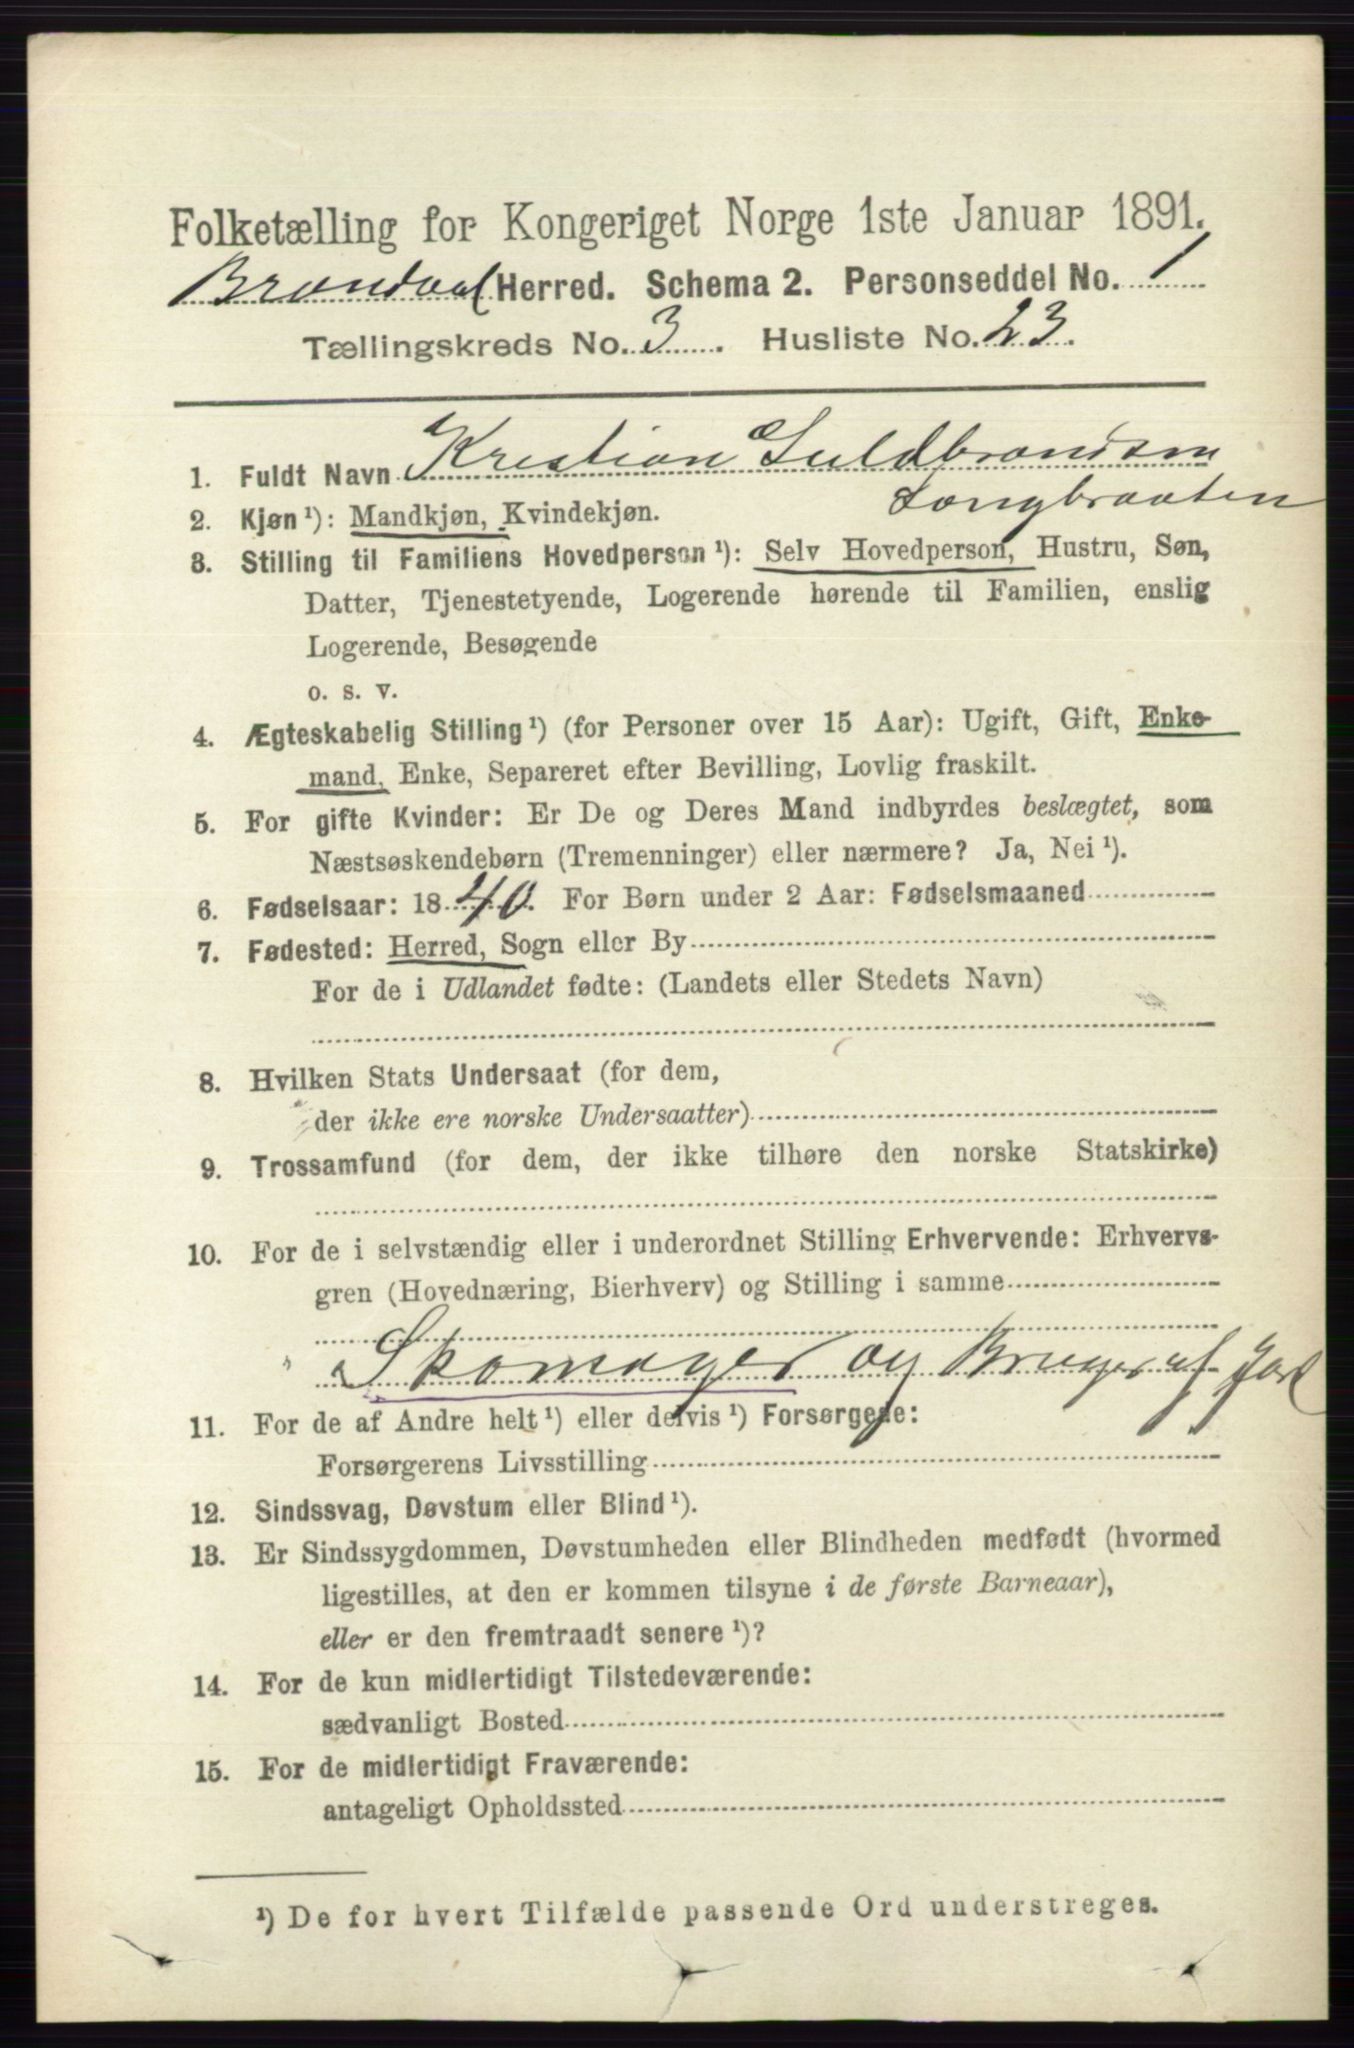 Folketælling for Kongeriget Norge 1ste Januar 1891.
Brandval Herred. Schema 2. Personseddel No. 1
Tællingskreds No. 3. Husliste No. 23.
1. Fuldt Navn Kristian Guldbrandsen
Langbraaten
2. Kjøn ¹): Mandkjøn, Kvindekjøn.
3. Stilling til Familiens Hovedperson ¹): Selv Hovedperson, Hustru, Søn,
Datter, Tjenestetyende, Logerende hørende til Familien, enslig
Logerende, Besøgende
o. s. v.
4. Ægteskabelig Stilling ¹) (for Personer over 15 Aar): Ugift, Gift, Enke-
mand, Enke, Separeret efter Bevilling, Lovlig fraskilt.
5. For gifte Kvinder: Er De og Deres Mand indbyrdes beslægtet, som
Næstsøskendebørn (Tremenninger) eller nærmere? Ja, Nei ¹).
6. Fødselsaar: 1840. For Børn under 2 Aar: Fødselsmaaned
7. Fødested: Herred, Sogn eller By
For de i Udlandet fødte: (Landets eller Stedets Navn)
8. Hvilken Stats Undersaat (for dem,
der ikke ere norske Undersaatter)
9. Trossamfund (for dem, der ikke tilhøre den norske Statskirke)
10. For de i selvstændig eller i underordnet Stilling Erhvervende: Erhvervs-
gren (Hovednæring, Bierhverv) og Stilling i samme
Skomager og Bruger af Jord
11. For de af Andre helt ¹) eller delvis ¹) Forsørgede:
Forsørgerens Livsstilling
12. Sindssvag, Døvstum eller Blind ¹).
13. Er Sindssygdommen, Døvstumheden eller Blindheden medfødt (hvormed
ligestilles, at den er kommen tilsyne i de første Barneaar),
eller er den fremtraadt senere ¹)?
14. For de kun midlertidigt Tilstedeværende:
sædvanligt Bosted
15. For de midlertidigt Fraværende:
antageligt Opholdssted
¹) De for hvert Tilfælde passende Ord understreges.